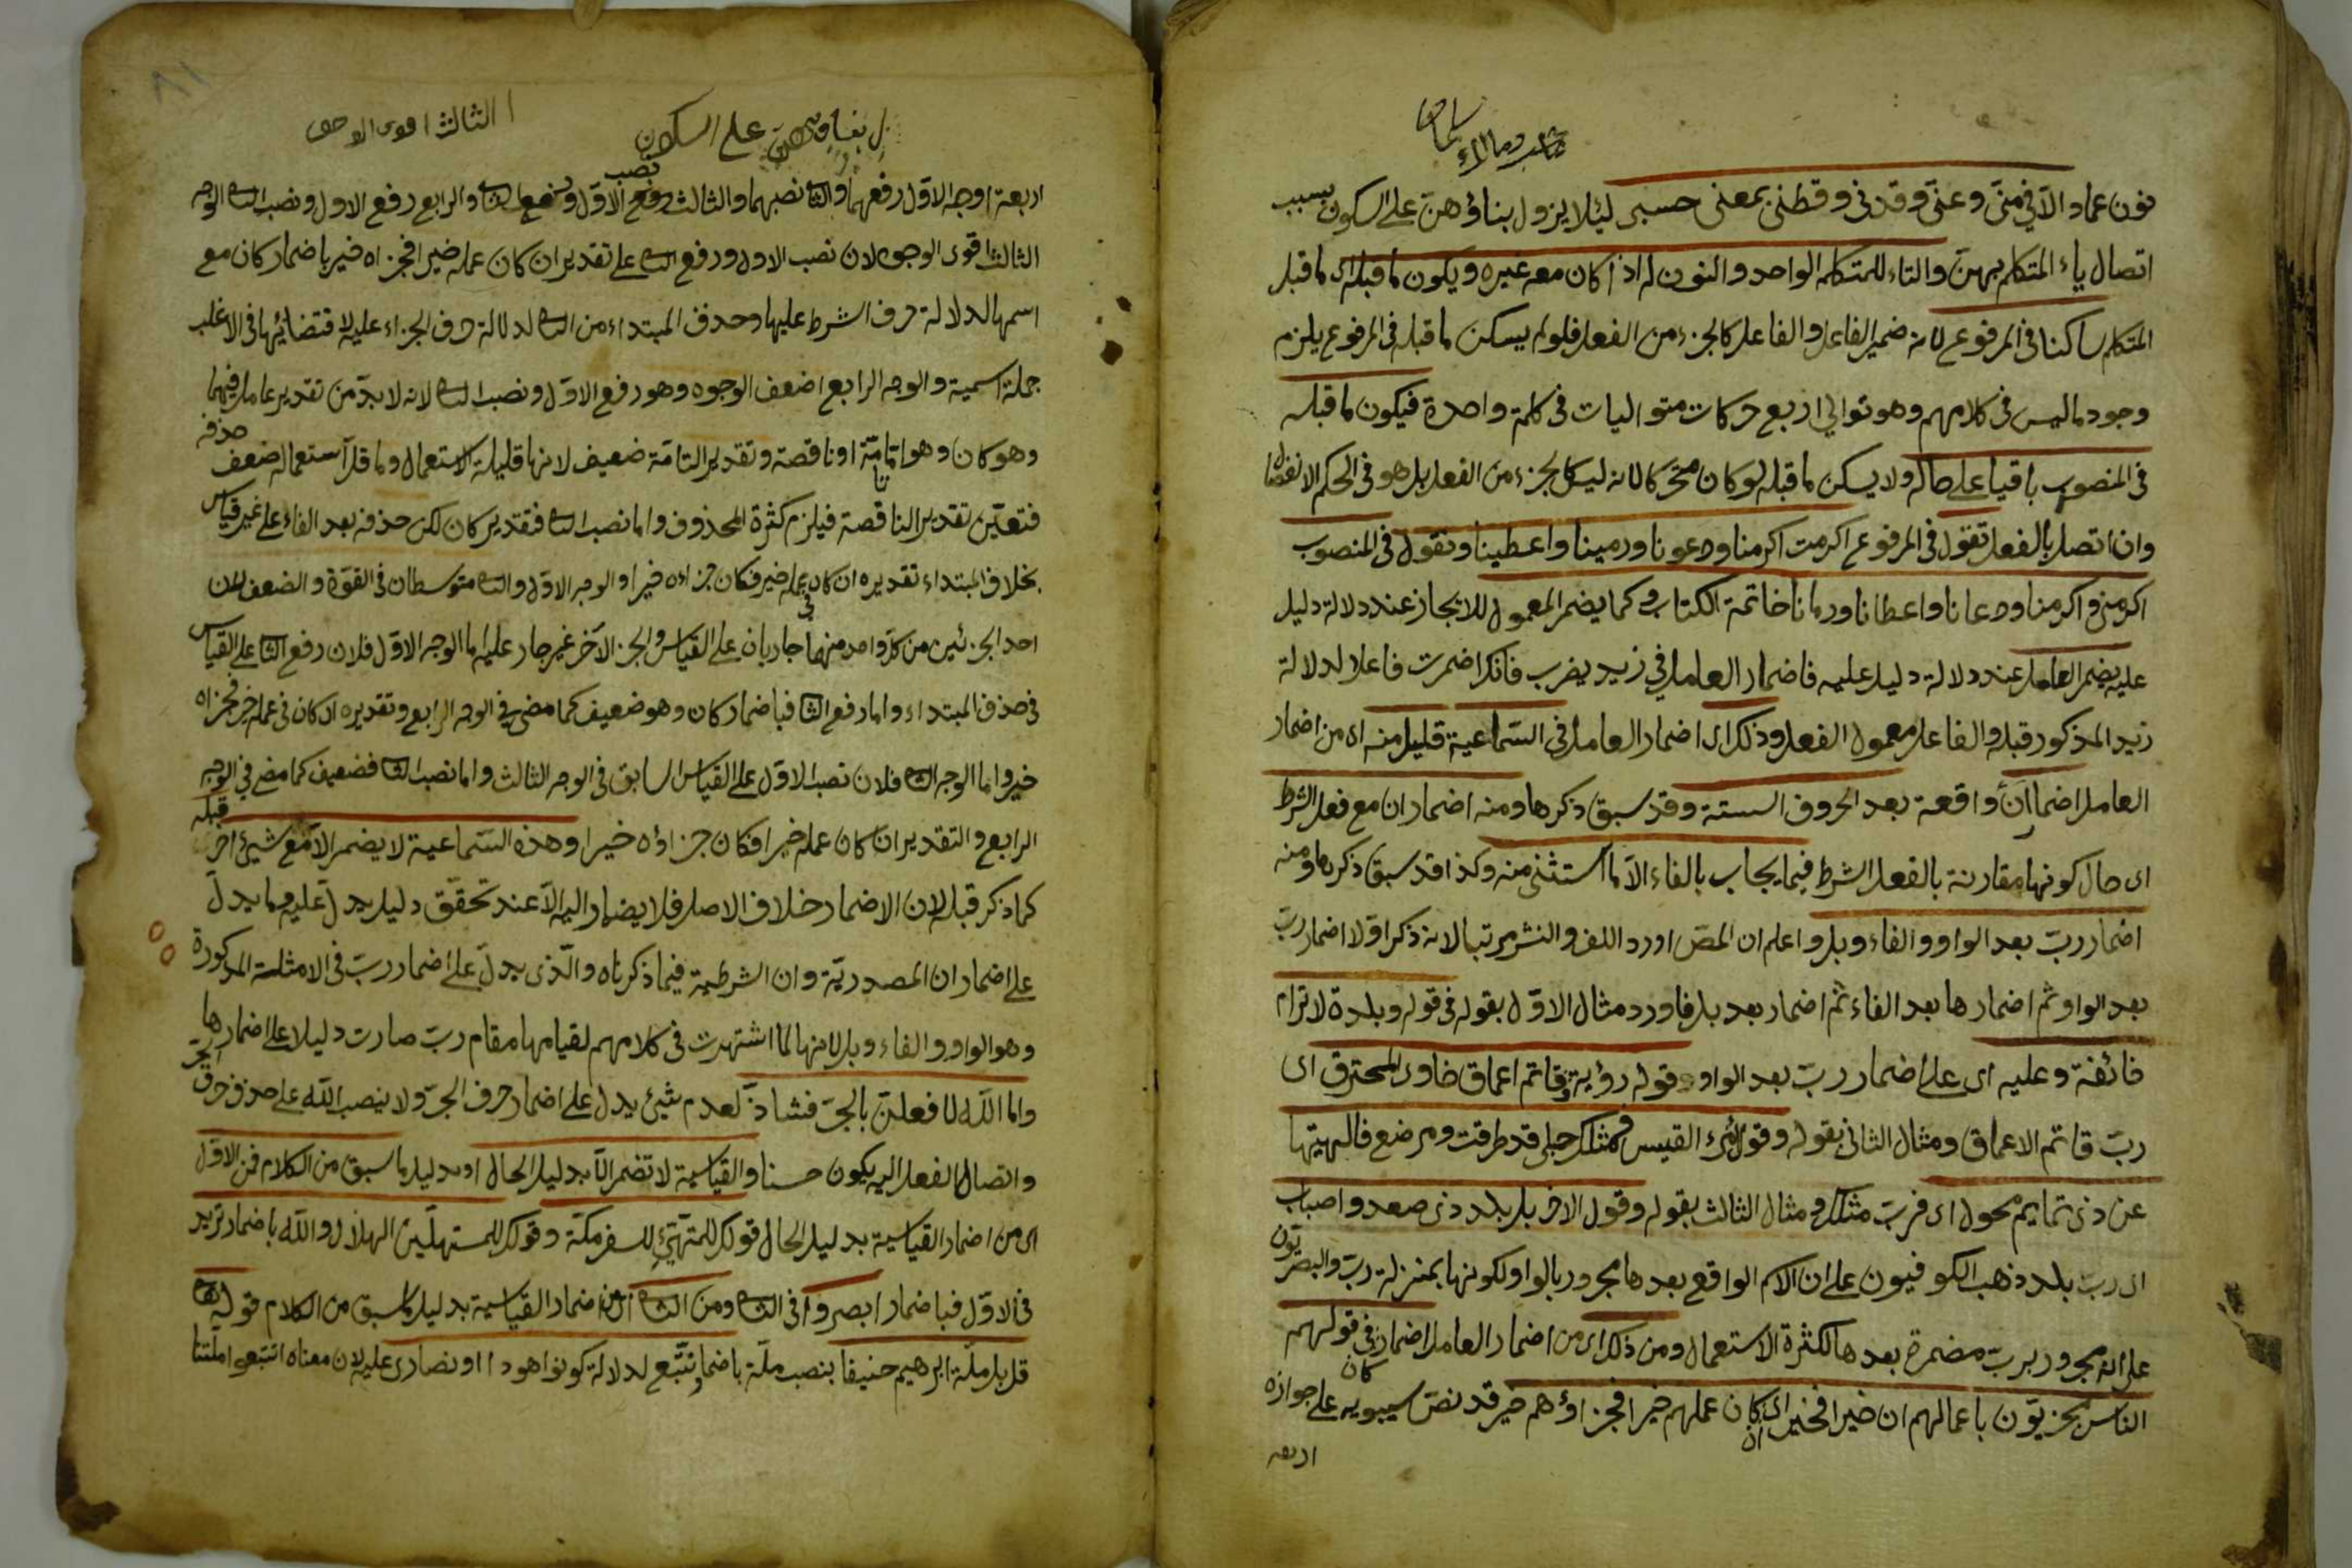 نون عماد الا في منّي وعنّي وقدني وقطني بمعنى حسبي لئلا يزول بناؤهن على السكون بسبب
اتصال ياء المتكلم بهن والتاء للمتكلم الواحد والنون له اذا كان معه غيره ويكون ما قبله اى ما قبل
المتكلم ساكنا في المرفوع لانه ضمير الفاعل والفاعل كالجزء من الفعل فلو لم يسكن ما قبله في المرفوع يلزم
وجود ما ليس في كلامهم وهو توالي اربع حركات متواليات في كلمة واحدة فيكون ما قبله
في المنصوب باقيا على حاله ولا يسكن ما قبله لو كان متحركا لانه ليس كالجزء من الفعل بل هو في الحكم الانفصال
وان اتصل بالفعل تقول في المرفوع اكرمت اكرمنا ودعونا ورمينا واعطينا وتقول في المنصوب
اكرمني واكرمنا ودعانا واعطانا ورمانا خاتمة الكتاب وكما يضمر المعمول للايجاز عند دلالة دليل
عليه يضمر العامل عند دلالة دليل عليه فاضمار العامل في زيد يضرب فانك اضمرت فاعلا لدلالة
زيد المذكور قبله والفاعل معمول الفعل وذلك اى اضمار العامل في السماعية قليل منه اى من اضمار
العامل اضمار ان واقعة بعد الحروف الستة وقد سبق ذكرها ومنه اضمار ان مع فعل الشرط
اى حال كونها مقارنة بالفعل الشرط فيما يجاب بالفاء الا ما استثنى منه وكذا قد سبق ذكرها ومنه
اضمار ربّ بعد الواو والفاء وبل واعلم ان المص اورد اللف والنشر مرتبا لانه ذكر اولا اضمار ربّ
بعد الواو ثم اضمارها بعد الفاء ثم اضمار بعد بل فاورد مثال الاوّل بقوله في قوله وبلدة لا ترام
خائفة وعليه اى على اضمار ربّ بعد الواو قوله رؤبة وقاتم اعماق خاوى المخترق اى
ربّ قاتم الاعماق ومثال الثاني بقوله وقول امرئ القيس فمثلك حبلى قد طرقت ومرضع فالهيتها
عن ذى تمايم محول اى فرب مثلك ومثال الثالث بقوله وقول الاخر بل بلد ذى صعد واصباب
اى ربّ بلد ذهب الكوفيون على ان الاسم الواقع بعدها مجرور بالواو لكونها بمنزلة ربّ والبصريون
على انه مجرور برب مضمرة بعدها لكثرة الاستعمال ومن ذلك اى من اضمار العامل اضمار كان في قولهم
الناس مجزيّون باعمالهم ان خيرا فخير اى ان كان عملهم خيرا فجزاؤهم خير قد نصّ سيبويه على جوازه
اربعة
على السكون
الثالث اقوى الوجوه
٨١
اربعة اوجه الاول رفعهما والثا نصبهما والثالث نصب الاوّل ورفع الثاني والرابع رفع الاول ونصب الثاني الوجه
الثالث اقوى الوجوه لان نصب الاول ورفع الثاني على تقدير ان كان عمله خيرا فجزاه خير باضمار كان مع
اسمها لدلالة حرف الشرط عليها وحذف المبتداء من الثاني لدلالة حرف الجزاء عليه لاقتضائها في الاغلب
جملة اسمية والوجه الرابع اضعف الوجوه وهو رفع الاوّل ونصب الثاني لانه لا بدّ من تقدير عامل فيهما
وهو كان وهو اما تامّة او ناقصة وتقدير التامة ضعيف لانها قليلة الاستعمال وما قل استعماله ضعف حذفه
فتعيّن تقدير الناقصة فيلزم كثرة المحذوف واما نصب الثاني فتقدير كان لكن حذفه بعد الفاء على غير قياس
بخلاف المبتداء تقديره ان كان في عمله خير فكان جزاءه خيرا والوجه الاوّل والثاني متوسطان في القوّة والضعف لان
احد الجزئين من كل واحد منهما جاريان على القياس والجزء الآخر غير جار عليه اما الوجه الاوّل فلان رفع الثا على القياس
في حذف المبتداء واما رفع الثا فباضمار كان وهو ضعيف كما مضى في الوجه الرابع وتقديره ان كان في عمله خير فجزاه
خير واما الوجه الثاني فلان نصب الاوّل على القياس السابق في الوجه الثالث واما نصب الثا فضعيف كما مضى في الوجه
الرابع والتقدير ان كان عمله خيرا فكان جزاؤه خيرا وهذه السماعية لا يضمر الا مع شيئ اخر قبله
كما ذكر قبله لان الاضمار خلاف الاصل فلا يضمار اليه الا عند تحقّق دليل يدل عليه وما يدلّ
على اضمار ان المصدريّة وان الشرطية فيما ذكرناه والّذى يدلّ على اضمار ربّ في الامثلة المذكورة
وهو الواو والفاء وبل لانها لما اشتهرت في كلامهم لقيامها مقام ربّ صارت دليلا على اضمارها
واما اللّه لافعلنّ بالجرّ فشاذّ لعدم شيئ يدل على اضمار حرف الجرّ ولا ينصب اللّه على حذف حرف الجرّ
واتصال الفعل اليه يكون حسنا والقياسية لا تضمر الّا بدليل الحال او بدليل ما سبق من الكلام فمن الاوّل
اى من اضمار القياسية بدليل الحال قولك للمتهيّئ للسفر مكّة وقولك للمستهلّين الهلال واللّه باضمار تريد
في الاوّل فباضمار ابصروا في الثاني ومن الثاني اى من اضمار القياسية بدليل ما سبق من الكلام قوله تعالى
قل بل ملّة ابرهيم حنيفا بنصب ملّة باضمار نتّبع لدلالة كونوا هودا او نصارى عليه لان معناه اتبعوا ملّتنا